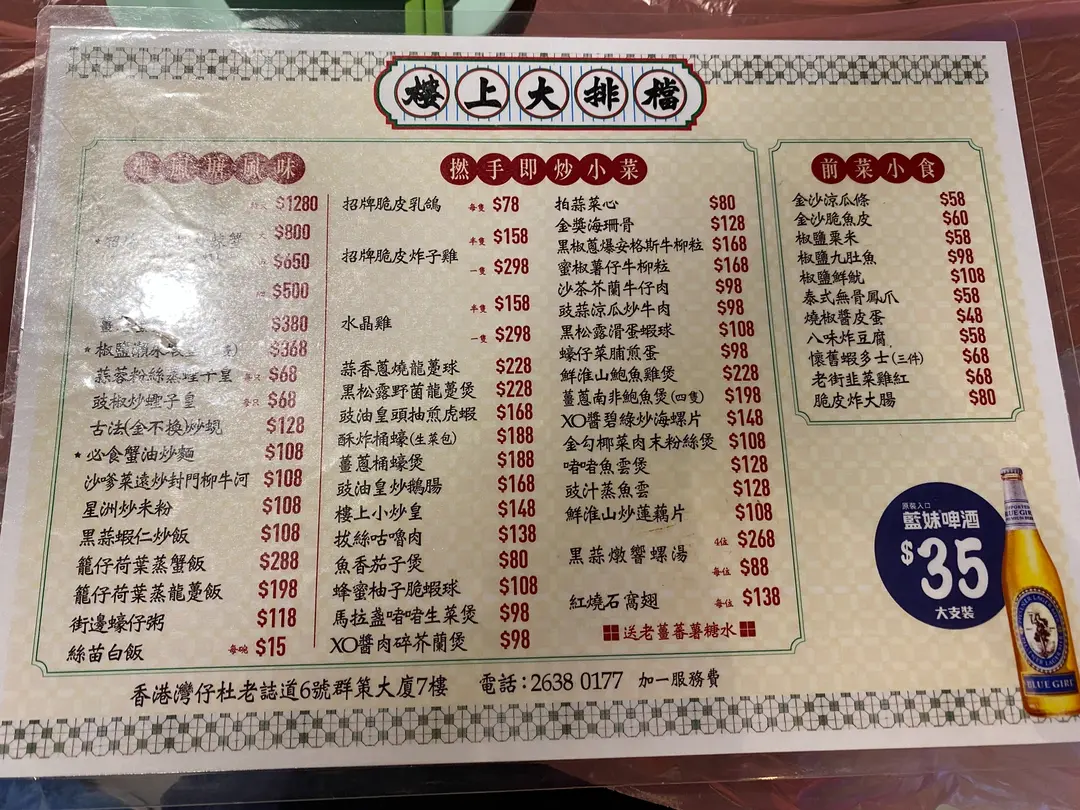 樓上大排檔
避風塘風味
$1280
$800
$650
$500
$380
$368
蒜蓉粉絲蒸蟶子皇 每只 $68
豉椒炒蟶子皇 每只 $68
古法(金不換)炒蜆 $128
★必食蟹油炒麵 $108
沙嗲菜遠炒封門柳牛河 $108
星洲炒米粉 $108
黑蒜蝦仁炒飯 $108
籠仔荷葉蒸蟹飯 $288
籠仔荷葉蒸龍躉飯 $198
街邊蠔仔粥 $118
絲苗白飯 每碗 $15
撚手即炒小菜
招牌脆皮乳鴿 每隻 $78
招牌脆皮炸子雞 半隻 $158
一隻 $298
水晶雞 半隻 $158
一隻 $298
蒜香蔥燒龍躉球 $228
黑松露野菌龍躉煲 $228
豉油皇頭抽煎虎蝦 $168
酥炸桶蠔(生菜包) $188
薑蔥桶蠔煲 $188
豉油皇炒鵝腸 $168
樓上小炒皇 $148
拔絲咕嚕肉 $138
魚香茄子煲 $80
蜂蜜柚子脆蝦球 $108
馬拉盞啫啫生菜煲 $98
XO醬肉碎芥蘭煲 $98
拍蒜菜心 $80
金獎海珊骨 $128
黑椒蔥爆安格斯牛柳粒 $168
蜜椒薯仔牛柳粒 $168
沙茶芥蘭牛仔肉 $98
豉蒜涼瓜炒牛肉 $98
黑松露滑蛋蝦球 $108
蠔仔菜脯煎蛋 $98
鮮淮山鮑魚雞煲 $228
薑蔥南非鮑魚煲(四隻) $198
XO醬碧綠炒海螺片 $148
金勾椰菜肉末粉絲煲 $108
啫啫魚雲煲 $128
豉汁蒸魚雲 $128
鮮淮山炒蓮藕片 $108
黑蒜燉響螺湯 4位 $268
每位 $88
紅燒石窩翅 每位 $138
送老薑蕃薯糖水
前菜小食
金沙涼瓜條 $58
金沙脆魚皮 $60
椒鹽粟米 $58
椒鹽九肚魚 $98
椒鹽鮮魷 $108
泰式無骨鳳爪 $58
燒椒醬皮蛋 $48
八味炸豆腐 $58
懷舊蝦多士(三件) $68
老街韭菜雞紅 $68
脆皮炸大腸 $80
原裝入口
藍妹啤酒
$35
大支裝
BLUE GIRL
香港灣仔杜老誌道6號群策大廈7樓 電話:2638 0177 加一服務費